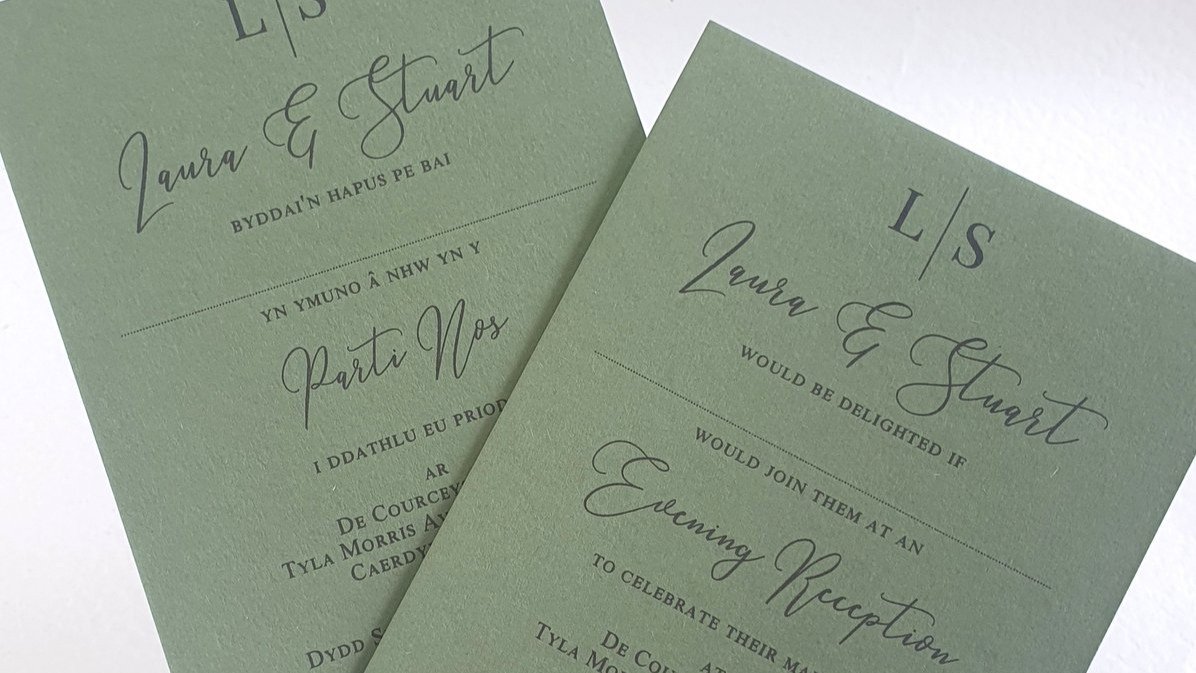 L|S
Laura & Stuart
BYDDAI'N HAPUS PE BAI
YN YMUNO Â NHW YN Y
Parti Nos
I DDATHLU EU PRIOD
AR
DE COURCEY
TYLA MORRIS AV
CAERDY
DYDD S
L|S
Laura & Stuart
WOULD BE DELIGHTED IF
WOULD JOIN THEM AT AN
Evening Reception
TO CELEBRATE THEIR MA
AT
DE COU
TYLA MO